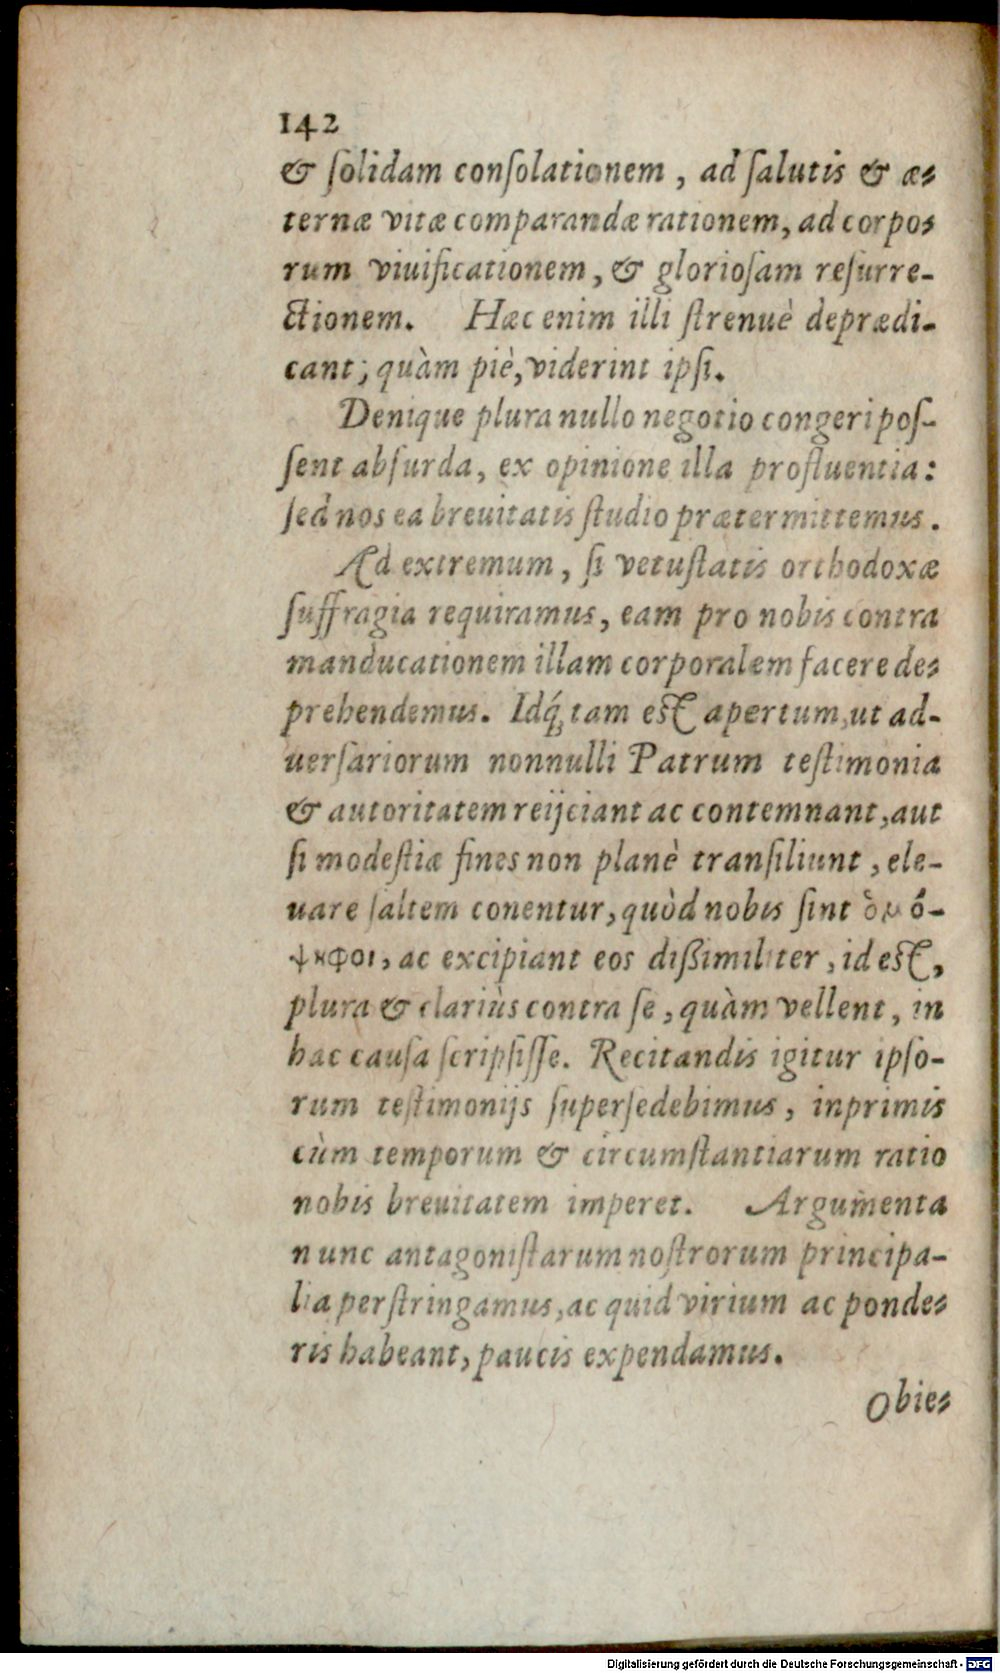 142
& ſolidam conſolationem , ad ſalutis & æ-
ternæ vitæ comparandæ rationem, ad corpo-
rum viuificationem, & glorioſam reſurre-
ctionem. Hæc enim illi ſtrenuè deprædi-
cant; quàm piè, viderint ipſi.
Denique plura nullo negotio congeri poſ-
ſent abſurda, ex opinione illa profluentia:
ſed nos ea breuitatis ſtudio prætermittemus.
Ad extremum, ſi vetuſtatis orthodoxæ
ſuffragia requiramus, eam pro nobis contra
manducationem illam corporalem facere de-
prehendemus. Idq́; tam eſt apertum, ut ad-
uerſariorum nonnulli Patrum teſtimonia
& autoritatem reijciant ac contemnant, aut
ſi modeſtiæ fines non planè tranſiliunt, ele-
uare ſaltem conentur, quòd nobis ſint ὁμό-
ψηφοι, ac excipiant eos dißimiliter, id eſt,
plura & clariùs contra ſe, quàm vellent, in
hac cauſa ſcripſiſſe. Recitandis igitur ipſo-
rum teſtimonijs ſuperſedebimus, inprimis
cùm temporum & circumſtantiarum ratio
nobis breuitatem imperet. Argumenta
nunc antagoniſtarum noſtrorum principa-
lia perſtringamus, ac quid virium ac ponde-
ris habeant, paucis expendamus.
Obie-
Digitalisierung gefördert durch die Deutsche Forschungsgemeinschaft - DFG